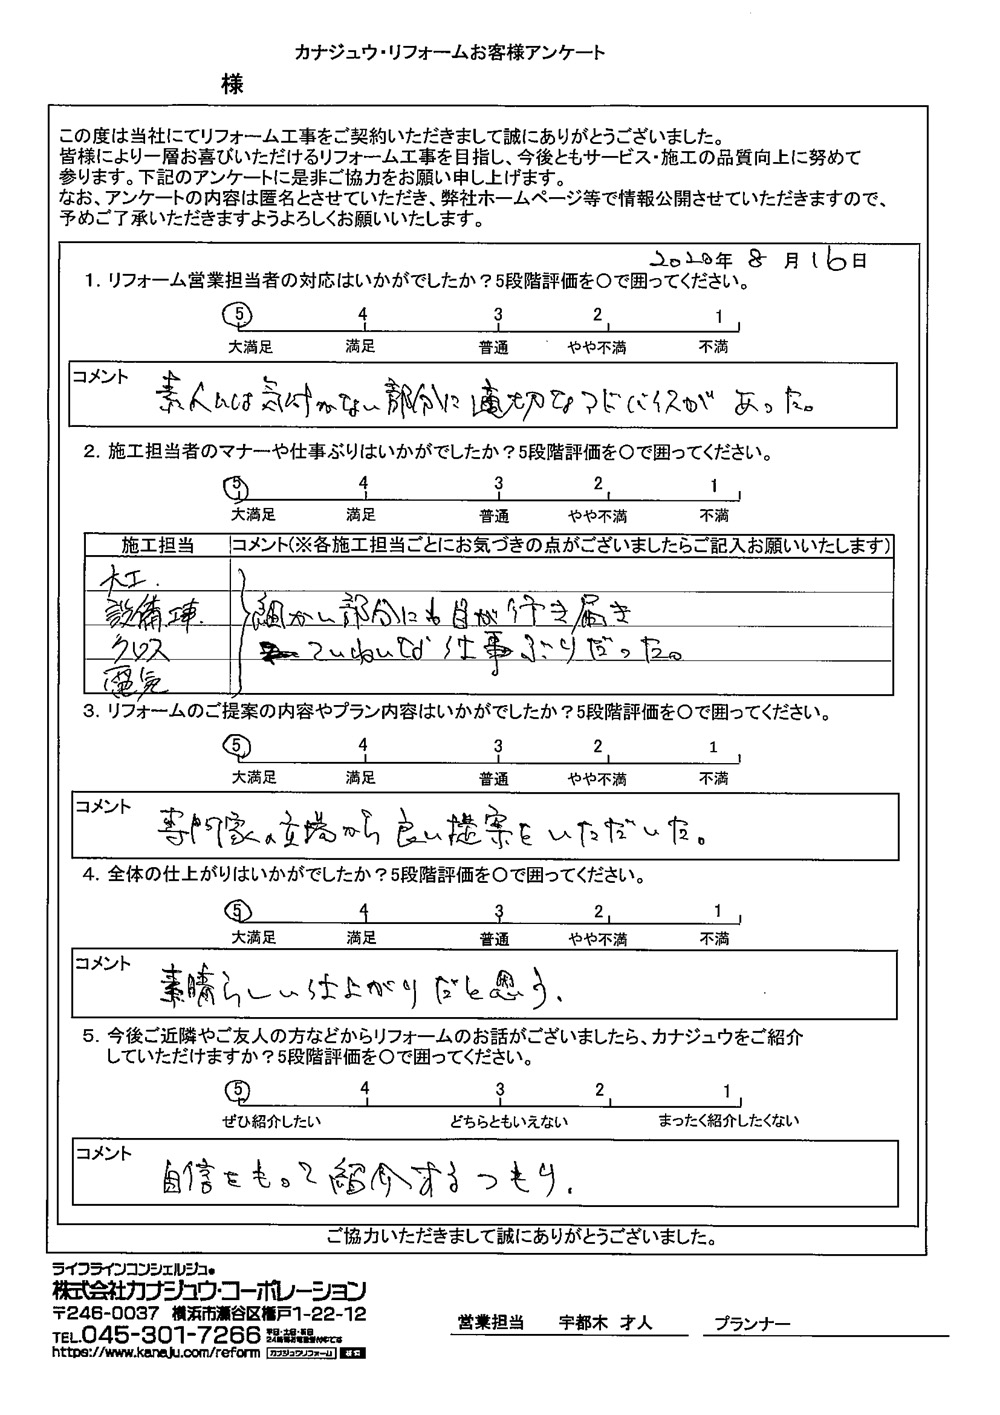 カナジュウ・リフォームお客様アンケート
様
この度は当社にてリフォーム工事をご契約いただきまして誠にありがとうございました。
皆様により一層お喜びいただけるリフォーム工事を目指し、今後ともサービス・施工の品質向上に努めて
参ります。下記のアンケートに是非ご協力をお願い申し上げます。
なお、アンケートの内容は匿名とさせていただき、弊社ホームページ等で情報公開させていただきますので、
予めご了承いただきますようよろしくお願いいたします。
2020年 8 月 16日
1. リフォーム営業担当者の対応はいかがでしたか？5段階評価を〇で囲ってください。
5 4 3 2 1
大満足 満足 普通 やや不満 不満
コメント
素人では気付かない部分に適切なアドバイスがあった。
2. 施工担当者のマナーや仕事ぶりはいかがでしたか？5段階評価を〇で囲ってください。
5 4 3 2 1
大満足 満足 普通 やや不満 不満
施工担当 コメント(※各施工担当ごとにお気づきの点がございましたらご記入お願いいたします)
大工.
設備工事. 細かい部分にも目が行き届き
クロス ていねいな仕事ぶりだった。
電気
3. リフォームのご提案の内容やプラン内容はいかがでしたか？5段階評価を〇で囲ってください。
5 4 3 2 1
大満足 満足 普通 やや不満 不満
コメント
専門家の立場から良い提案をいただいた。
4. 全体の仕上がりはいかがでしたか？5段階評価を〇で囲ってください。
5 4 3 2 1
大満足 満足 普通 やや不満 不満
コメント
素晴らしい仕上がりだと思う.
5. 今後ご近隣やご友人の方などからリフォームのお話がございましたら、カナジュウをご紹介
していただけますか？5段階評価を〇で囲ってください。
5 4 3 2 1
ぜひ紹介したい どちらともいえない まったく紹介したくない
コメント
自信をもって紹介するつもり.
ご協力いただきまして誠にありがとうございました。
ライフラインコンシェルジュ。
株式会社カナジュウ・コーポレーション
〒246-0037 横浜市瀬谷区橋戸1-22-12
TEL.045-301-7266 平日・土日・祝日
24時間お電話受付中です
https://www.kanaju.com/reform カナジュウリフォーム 検索
営業担当 宇都木 才人 プランナー